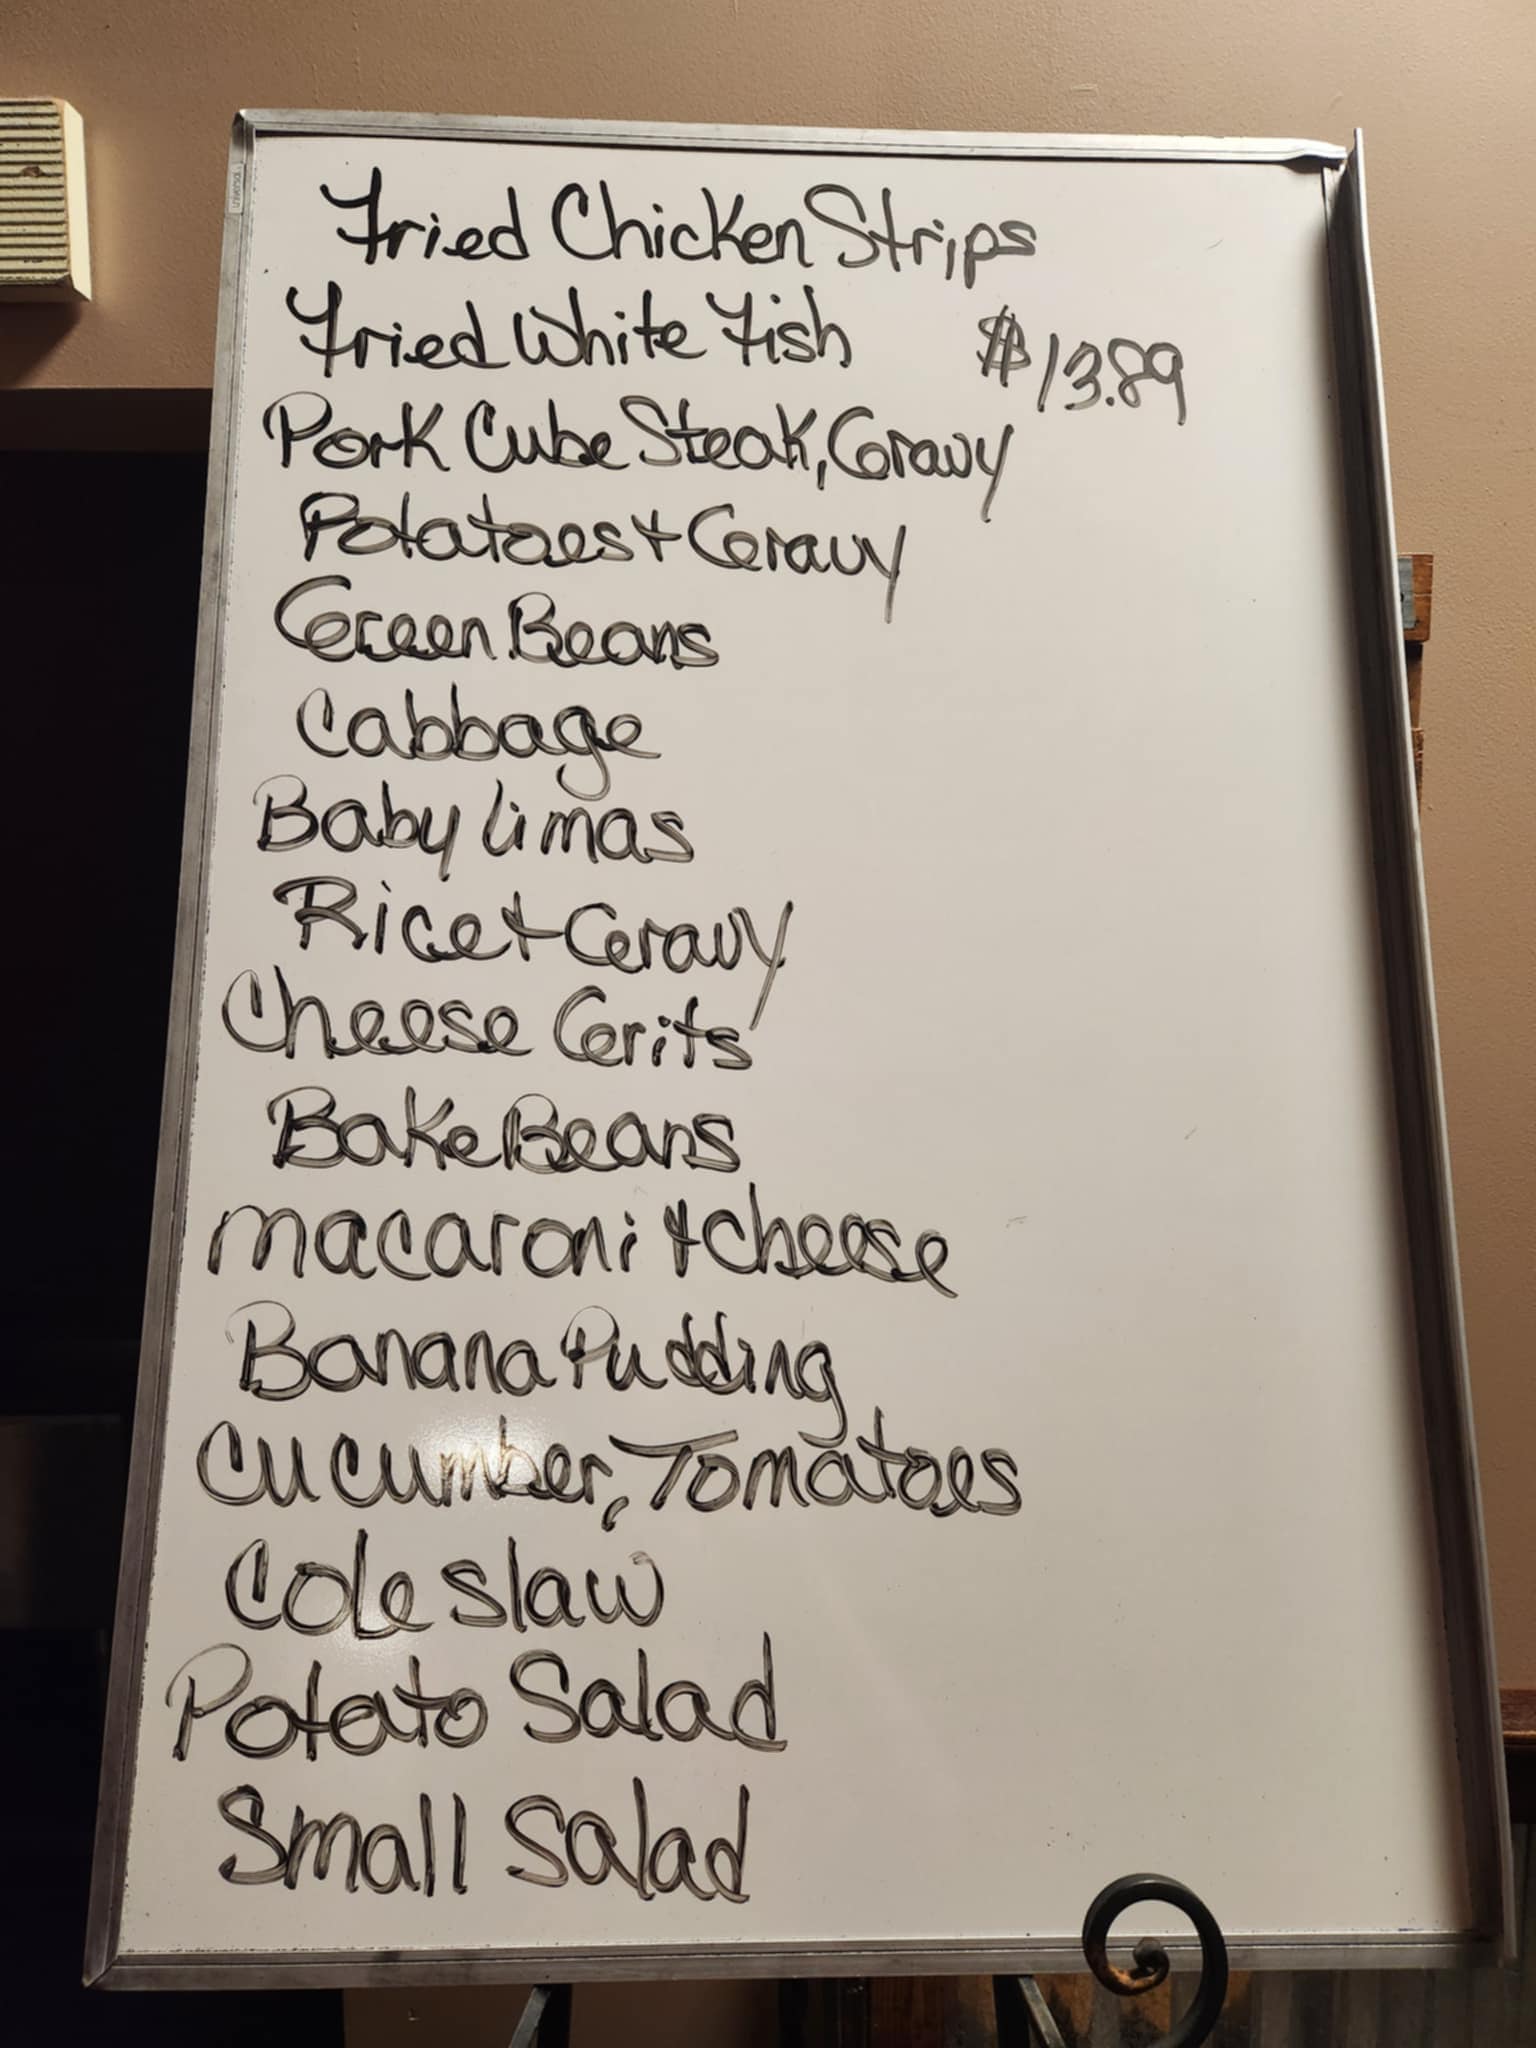 Fried Chicken Strips
Fried White Fish $13.89
Pork Cube Steak, Gravy
Potatoes + Gravy
Green Beans
Cabbage
Baby limas
Rice + Gravy
Cheese Grits
Bake Beans
macaroni + cheese
Banana Pudding
Cucumber, Tomatoes
Cole slaw
Potato Salad
Small Salad